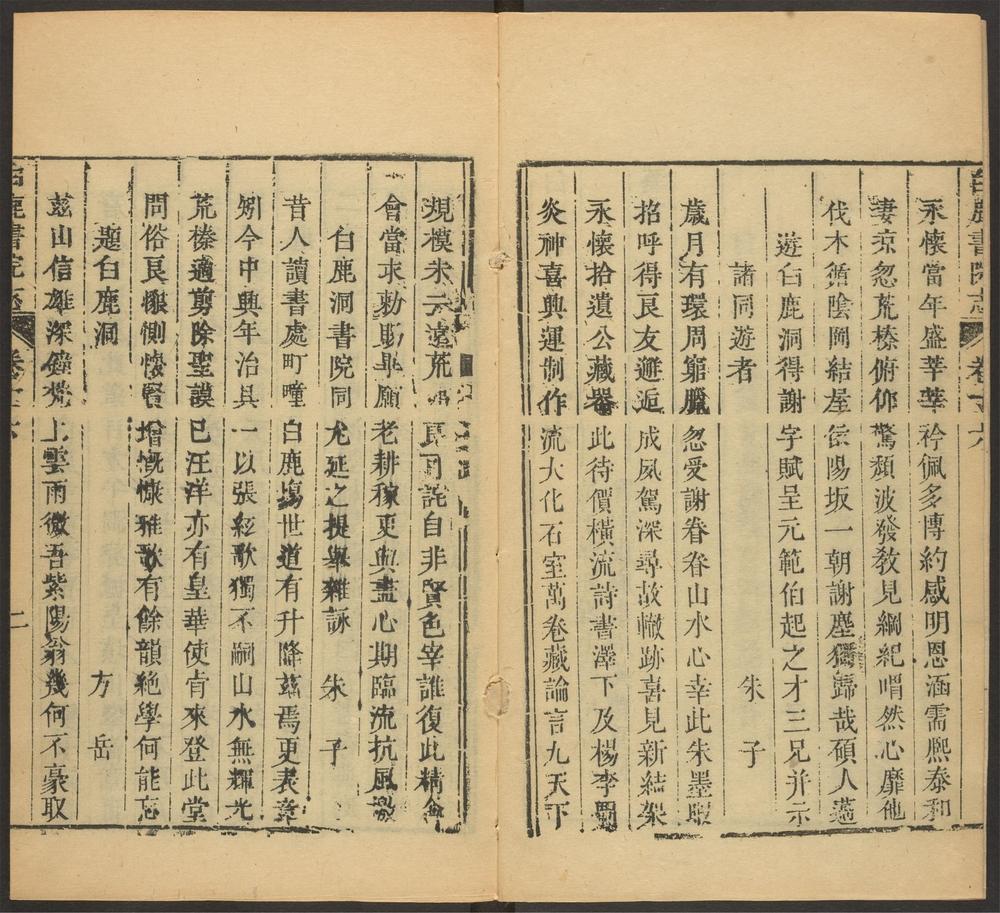 白鹿書院志 卷十六
永懷當年盛莘莘衿佩多博約感明恩涵濡熙泰和
淒凉忽荒榛俯仰驚頹波發教見綱紀喟然心靡他
伐木循陰岡結屋依陽坂一朝謝塵獨歸哉碩人薖
遊白鹿洞得謝字賦呈元範伯起之才三兄并示
諸同遊者 朱子
歲月有環周窮臘忽受謝眷眷山水心幸此朱墨暇
招呼得良友邂逅成夙駕深尋故轍跡喜見新結架
永懷拾遺公藏器此待價橫流詩書澤下及楊李霸
炎神喜興運制作流大化石室萬卷藏論言九天下
規模未云遠荒 良可詫自非賢邑宰誰復此精舍
會當求勅賜畢願老耕稼更與盡心期臨流抗風激
白鹿洞書院同尤延之提舉雜詠 朱子
昔人讀書處町疃白鹿塲世道有升降茲焉更表章
矧今中興年治具一以張絃歌獨不嗣山水無輝光
荒榛適剪除聖謨已汪洋亦有皇華使肯來登此堂
問俗良懷惻懷賢增慨慷雅歌有餘韻絶學何能忘
題白鹿洞 方岳
茲山信雄深鐘梵上雲雨微吾紫陽翁幾何不豪取
白鹿書院志 卷十六 二